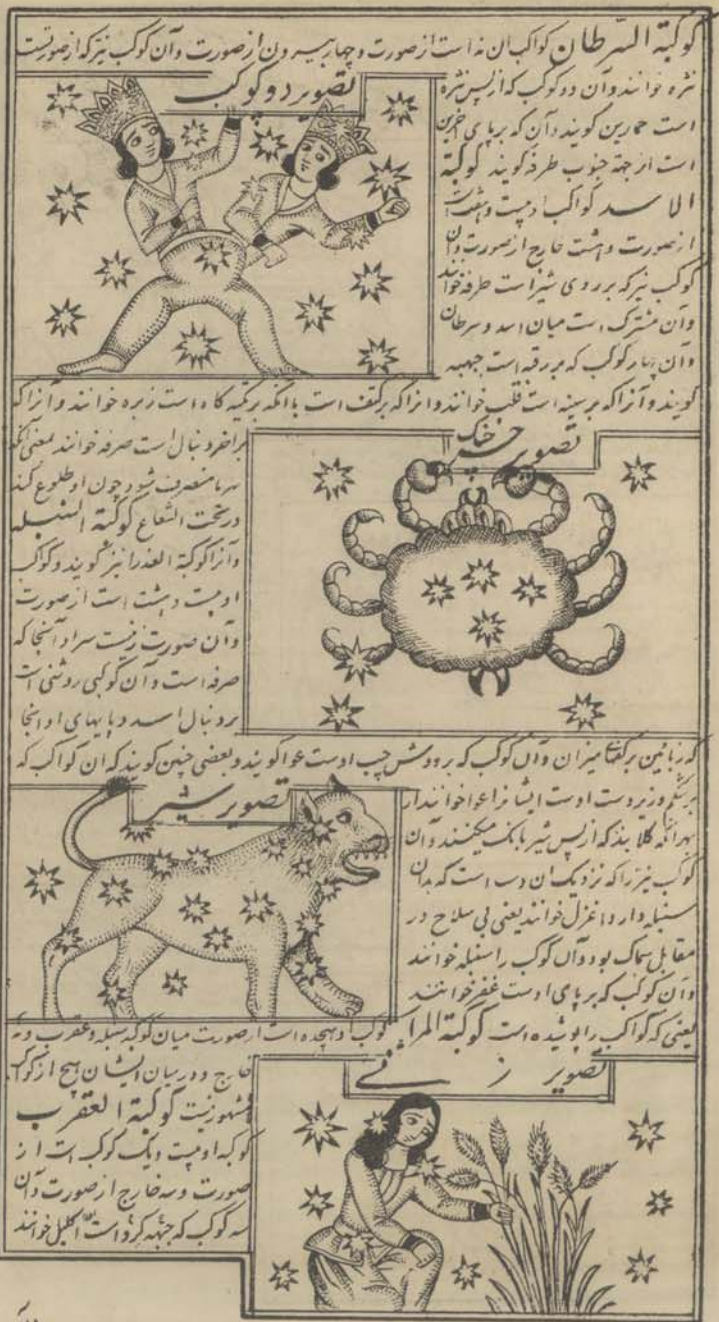 کوکبة السرطان کواکب آن نه است از صورت و چهار بیرون از صورت و آن کوکب نیز که از صورتست
تصویر دو کوکب
نثره خوانند و آن دو کوکب که از پس نثره
است حمارین کویند و آن که بر پای آخرین
است از جهة جنوب طرفه کویند کوکبة
الاسد کواکب او بیست و هفت است
از صورت و هشت خارج از صورت و آن
کوکب نیز که بر روی شیر است طرفه خوانند
و آن مشترک است میان اسد و سرطان
و آن چهار کوکب که بر رقبه است جبهه
کویند و آنرا که بر سینه است قلب خوانند و آنرا که بر کتف است با آنکه بر تهیکاه است زبره خوانند و آنرا که
تصویر خرچنک
بر آخر دنبال است صرفه خوانند بمعنی آنکه
سرما منصرف شود چون او طلوع کند
در تحت الشعاع کوکبة السنبله
و آنرا کوکبة العذرا نیز کویند و کواکب
او بیست و هشت است از صورت
و آن صورت زنیست سر او آنجا که
صرفه است و آن کوکبی روشنی است
بر دنبال اسد و پایهای او آنجا
که زبانین بر کفتی میزان و آن کوکب که بر دوش چپ اوست عوا کویند و بعضی چنین کویند که آن کواکب که
تصویر شیر
بر شکم و زیر دست اوست ایشانرا عوا خوانند از
بهر آنکه کلابند که از پس شیر بانک میکنند و آن
کوکب نیز را که نزدیک آن دست است که بدان
سنبله دارد اعزل خوانند یعنی بی سلاح در
مقابل سماک بود و آن کوکب را سنبله خوانند
و آن کوکب که بر پای اوست غفر خوانند
یعنی که کواکب را پوشیده است کوکبة المیزان
کوکب او هجده است از صورت میان کوکبه سنبله و عقرب و نه
تصویر زنی
خارج و در میان ایشان هیچ از کواکب
مشهور نیست کوکبة العقرب
کوکبه او بیست و یک کوکب است از
صورت و سه خارج از صورت و آن
سه کوکب که جبهه کرده است اکلیل خوانند